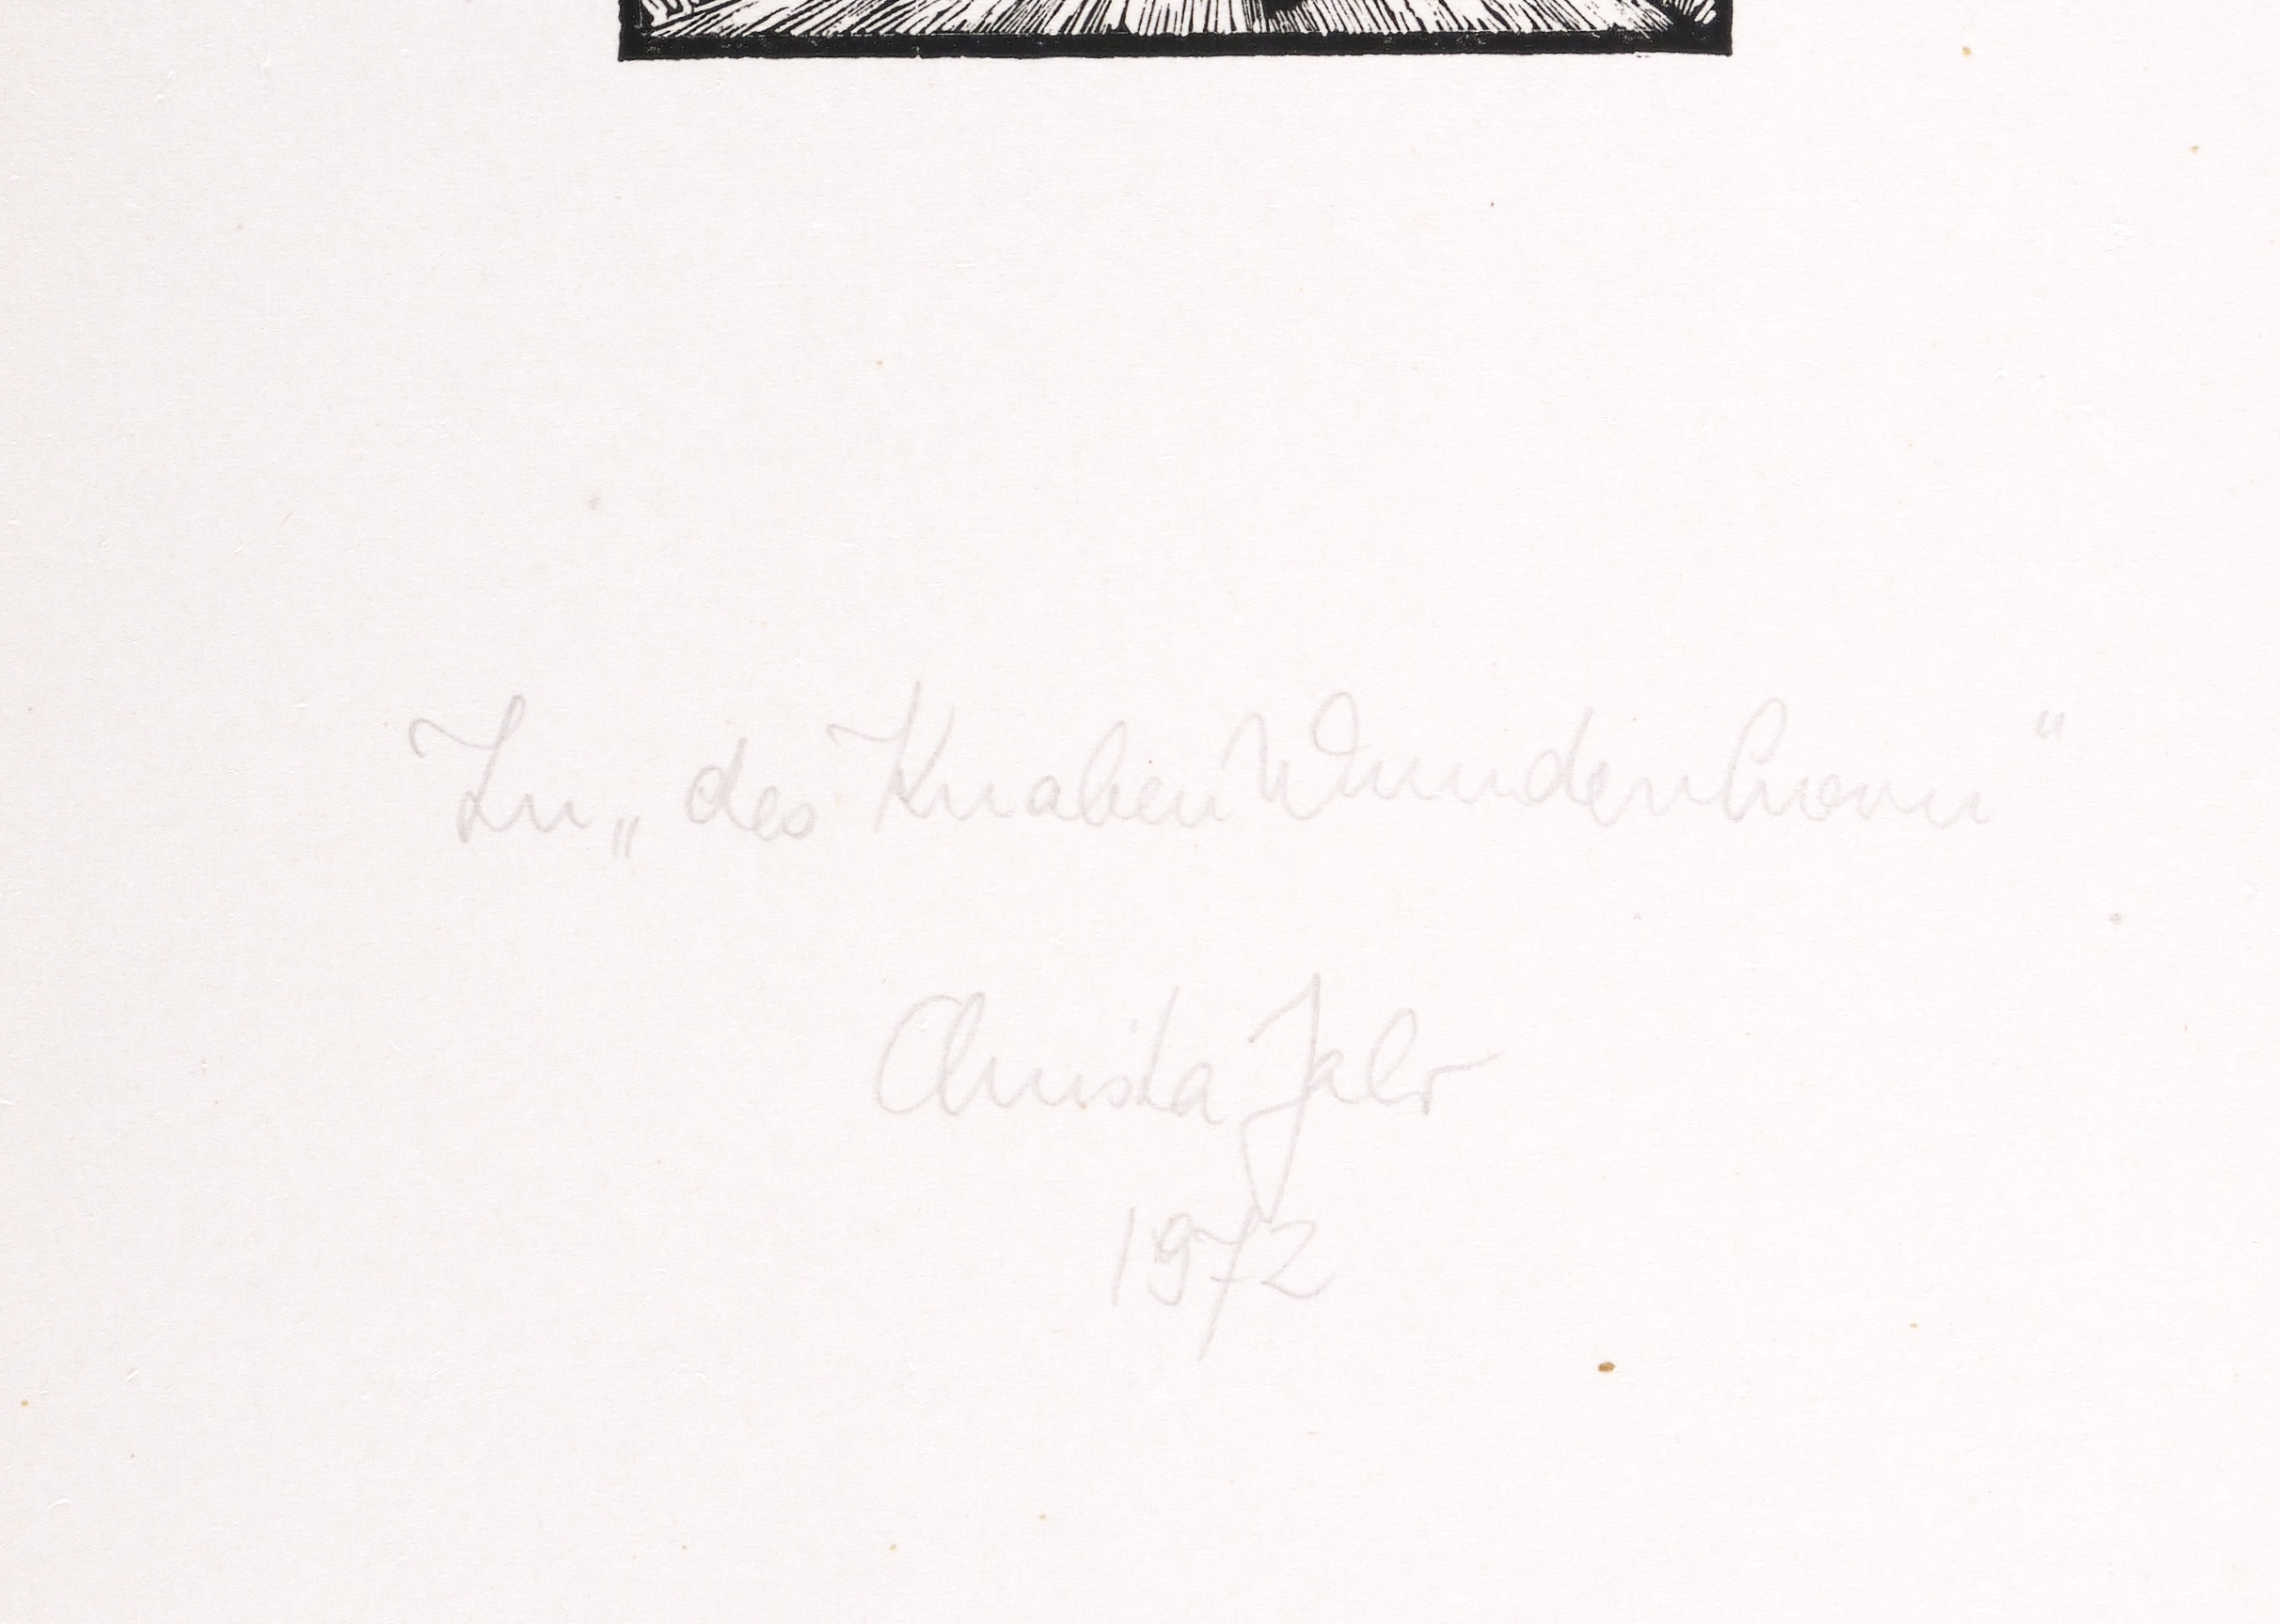 Zu „des Knaben Wunderhorn“
Christa Jahr
1972